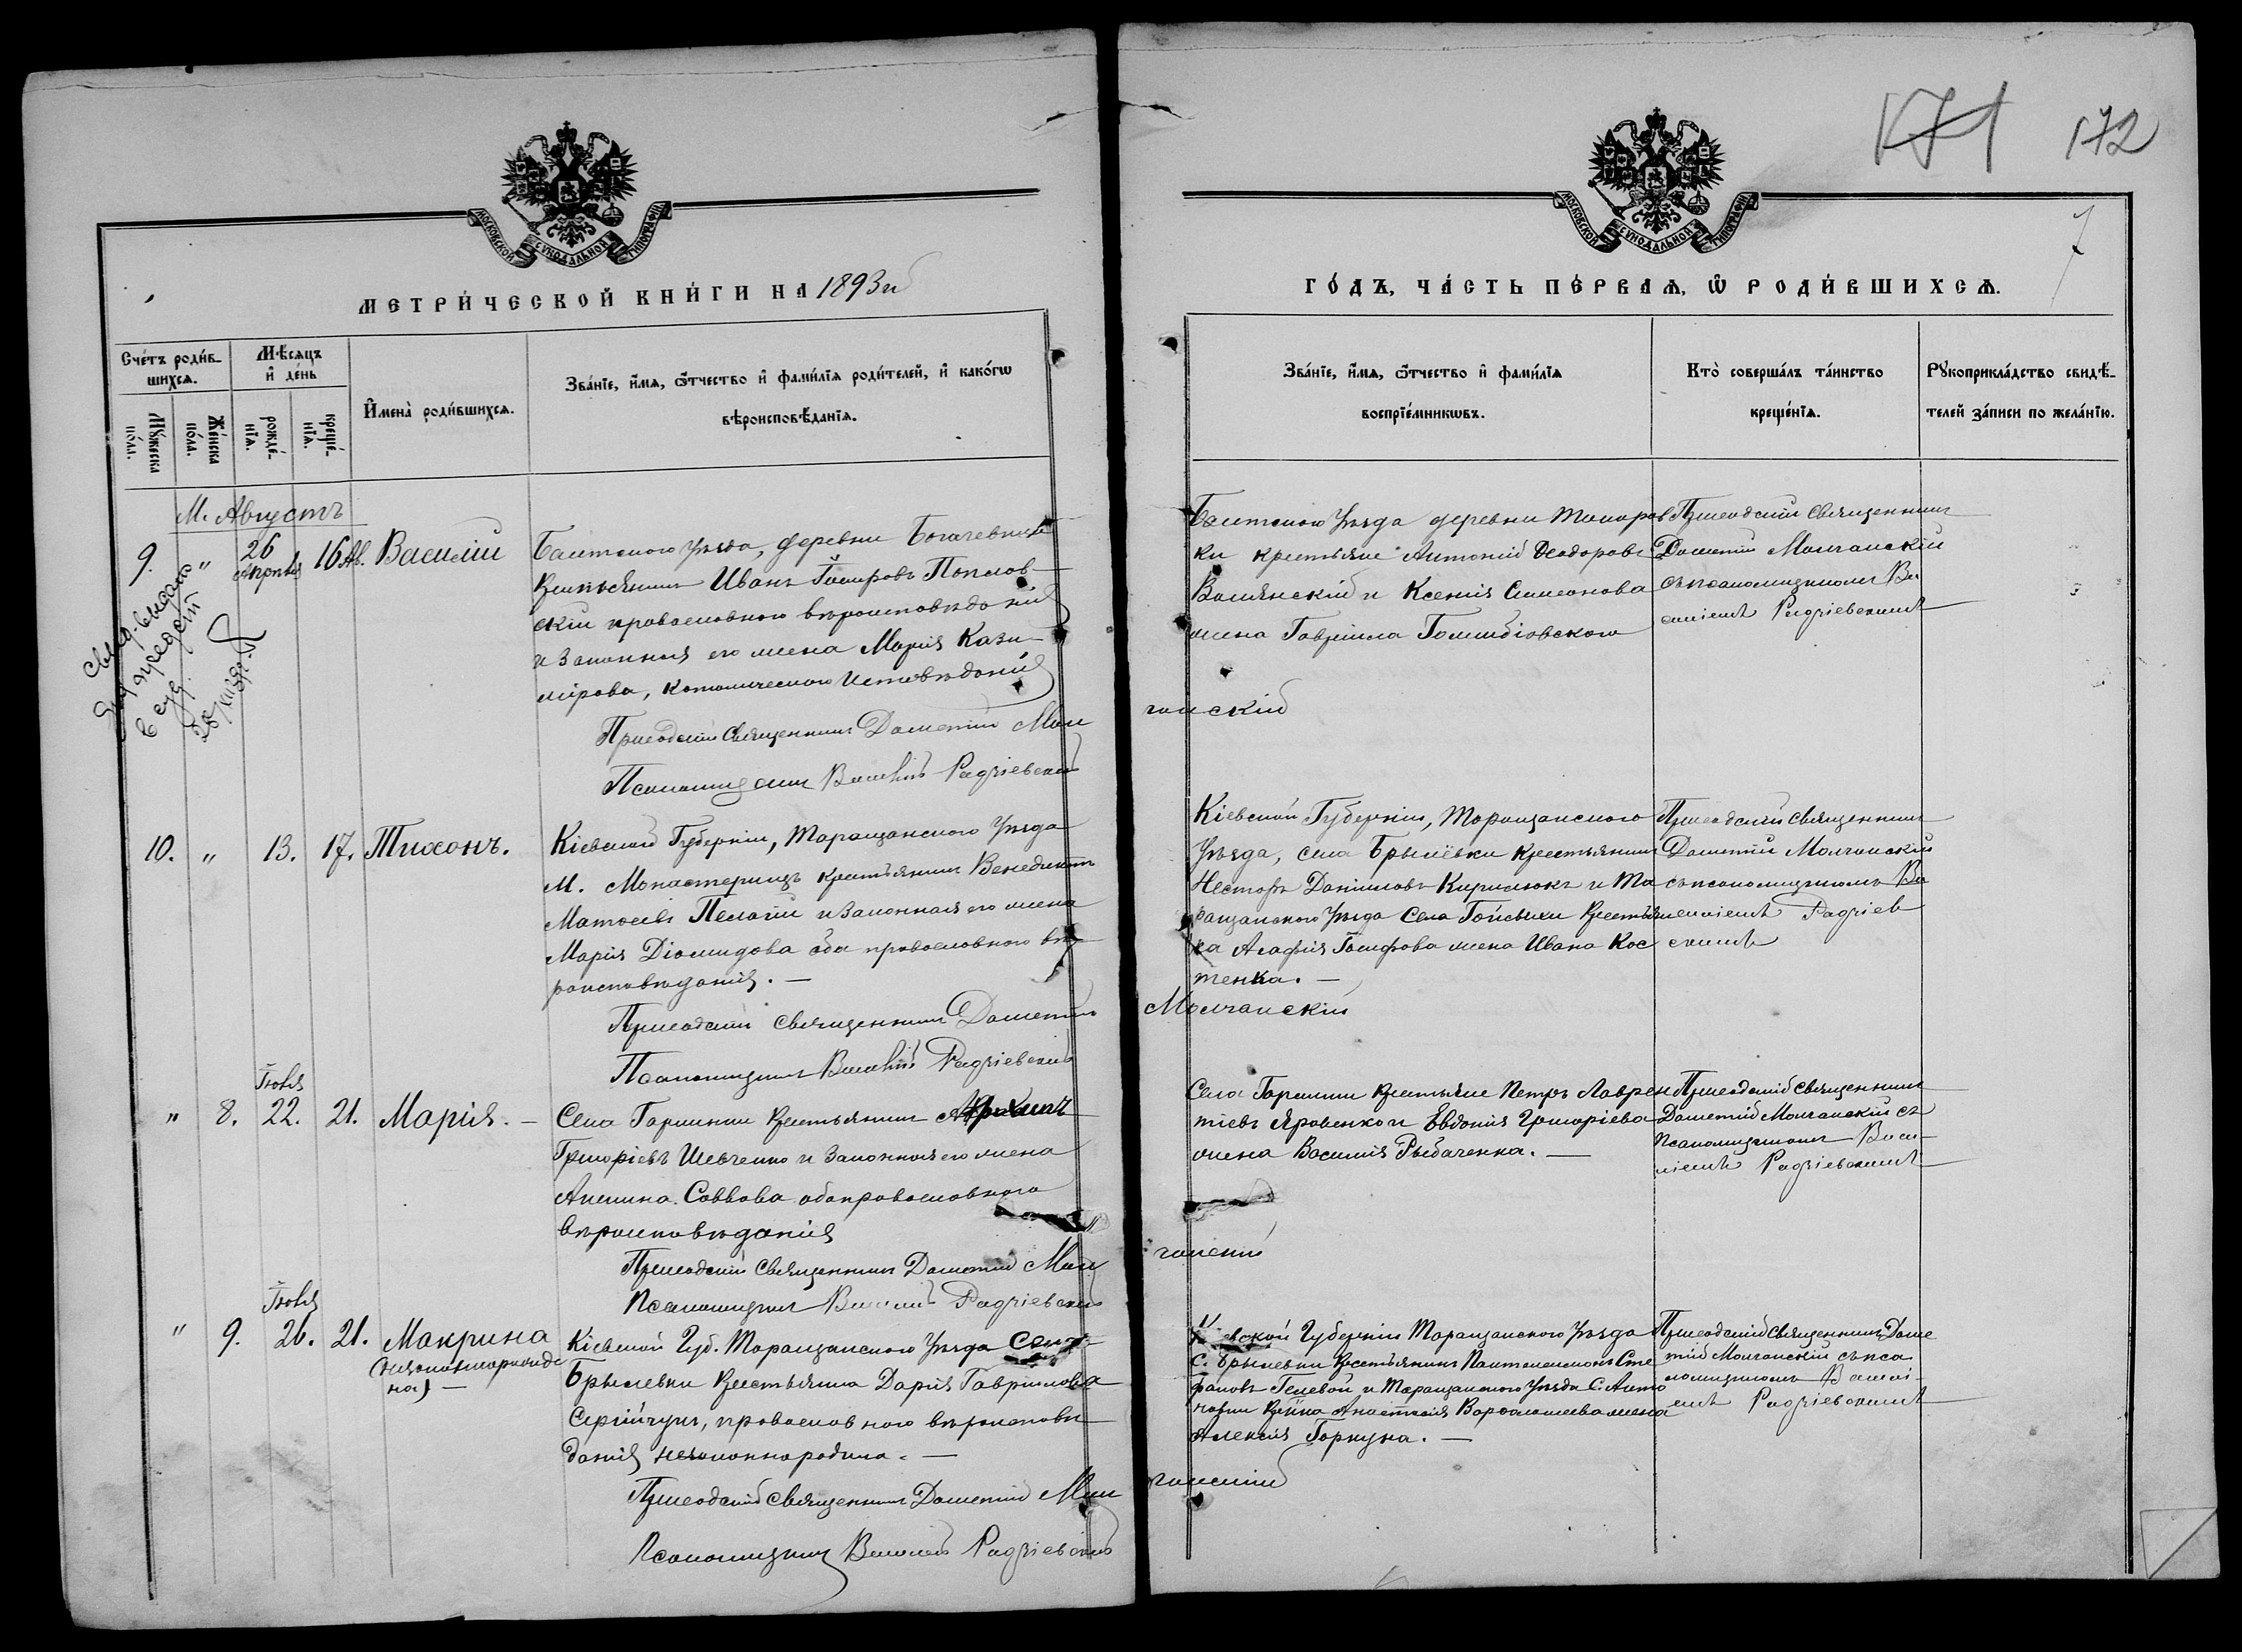 171 172
7
МОСКОВСКОЙ СѴНОДАЛЬНОЙ ТИПОГРАФІИ
МОСКОВСКОЙ СѴНОДАЛЬНОЙ ТИПОГРАФІИ
МЕТРИ́ЧЕСКОЙ КНИ́ГИ НА 1893й
ГО́ДЪ, ЧА́СТЬ ПЕ́РВАѦ, Ѿ РОДИ́ВШИХСѦ.
Сче́тъ роди́в-
шихсѧ.
Мѹ́жеска по́ла.
Же́нска по́ла.
Мѣ́сѧцъ и҆ де́нь
рожде́-нїѧ.
креще́-нїѧ.
И҆мена̀ роди́вшихсѧ.
Зва́нїе, и҆́мѧ, ѻ҆́тчество и҆ фами́лїѧ роди́телей, и҆ како́гѡ
вѣроисповѣ́данїѧ.
Зва́нїе, и҆́мѧ, ѻ҆́тчество и҆ фами́лїѧ
воспрїе́мникѡвъ.
Кто̀ соверша́лъ та́инство
креще́нїѧ.
Рѹкоприкла́дство свидѣ́-
телей за́писи по жела́нїю.
М. Августъ
9. " 26 Апрѣля 16 Ав. Василій
Балтскаго уѣзда, деревни
Крестьянинъ Иванъ Іосифовъ Поплов-
скій православнаго вѣроисповѣданія
и законная его жена Марія Кази-
мірова, католическаго исповѣданія
Приходскій Священникъ Дометій Мол
чанскій
Псаломщикъ Василій Радзіевскій
Балтскаго уѣзда деревни Топоров
ки крестьяне Антоній Ѳеодоровъ
Волянскій и Ксенія Симеонова
жена Гавріила
Приходскій Священникъ
Дометій Молчанскій
съ псаломщикомъ Ва
силіемъ Радзіевскимъ
10. " 13. 17. Тихонъ.
Кіевской Губерніи, Таращанскаго Уѣзда
М. Монастырищъ крестьянинъ Венедиктъ
Матѳеевъ и законная его жена
Марія Діомидова оба православнаго вѣ-
роисповѣданія. —
Приходскій Священникъ Дометій
Молчанскій
Псаломщикъ Василій Радзіевскій
Кіевской Губерніи, Таращанскаго
Уѣзда, села Брылёвки Крестьянинъ
Несторъ Даніиловъ Кирилюкъ и Та
ращанскаго Уѣзда Села Крестьян
ка Агафія Іосифова жена Ивана Кос
тенка. —
Приходскій Священникъ
Дометій Молчанскій
съ псаломщикомъ Ва
силіемъ Радзіев
скимъ
" 8. Іюля 22. 21. Марія. —
Села Крестьянинъ
Григоріевъ Шевченко и законная его жена
Акилина Саввова оба православнаго
вѣроисповѣданія
Приходскій Священникъ Дометій Мол
чанскій
Псаломщикъ Василій Радзіевскій
Села Крестьяне Петръ Лаврен
тіевъ Яровенко и Евдокія Григоріева
жена Василія Рыбаченка. —
Приходскій Священникъ
Дометій Молчанскій съ
Псаломщикомъ Васи-
ліемъ Радзіевскимъ
" 9. Іюля 26. 21. Макрина
(незаконнорожде
ная) —
Кіевской Губ. Таращанскаго Уѣзда Села
Брылевки Крестьянка Дарія Гавріилова
Сергійчукъ, православнаго вѣроисповѣ
данія незаконно родила. —
Приходскій Священникъ Дометій Мол
чанскій
Псаломщикъ Василій Радзіевскій
Кіевской Губерніи Таращанскаго Уѣзда
С. Брылевки Крестьянинъ Пантелеимонъ Сте
фановъ Гелевой и Таращанскаго Уѣзда С.
Анастасія Варѳоломеева жена
Алексія Горкуна. —
Приходскій Священникъ Доме
тій Молчанскій съ пса
ломщикомъ Василі-
емъ Радзіевскимъ